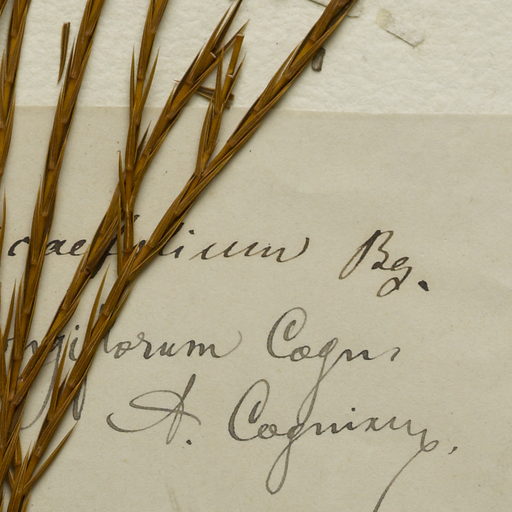 caefolium Bg.
longiflorum Cogn.
A. Cogniaux.